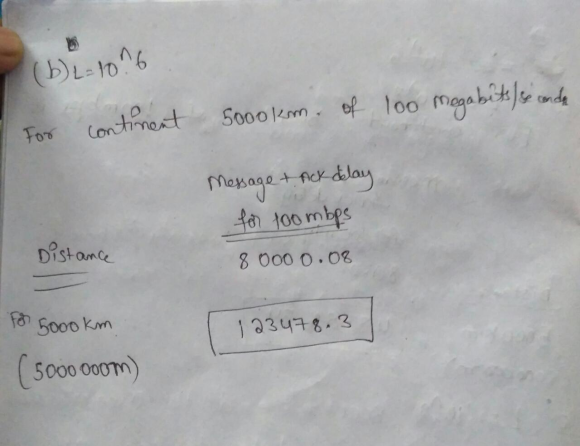 (b) L=10^6
For continent 5000km. of 100 megabits/seconds
Message + Ack delay
for 100mbps
Distance
80000.08
For 5000km
123478.3
(5000000m)